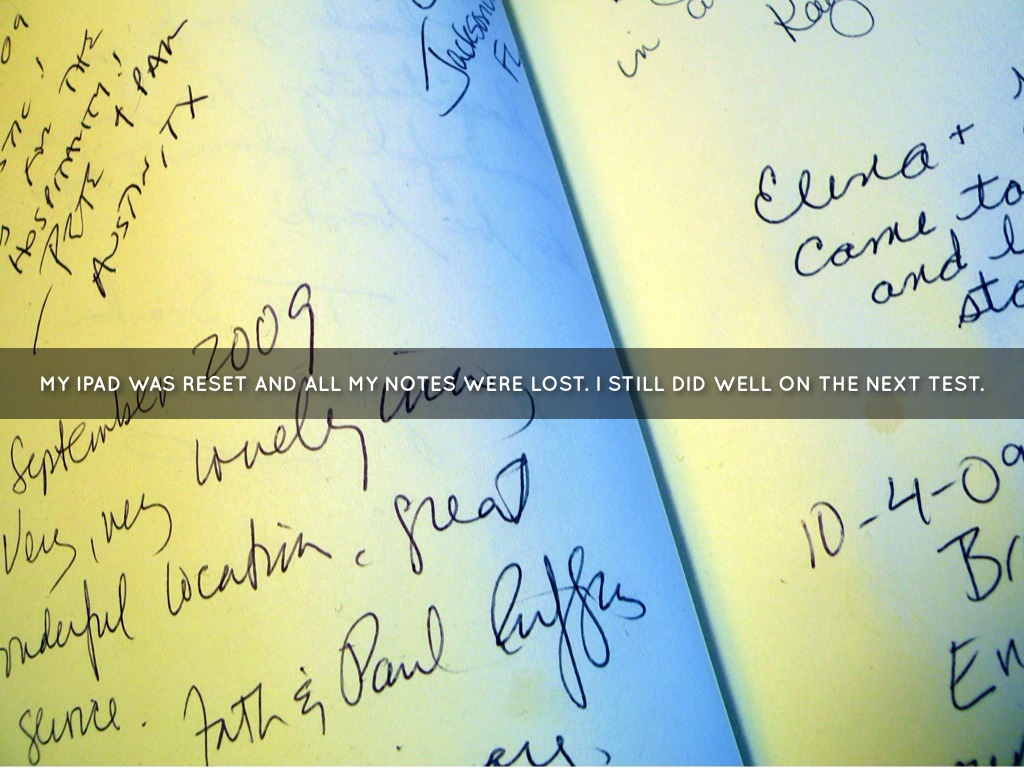 09
STIC!
FOR THE
HOSPITALITY!!
PETE + PAM
AUSTIN, TX
Jackson
FL
in
Kay
Elena +
Came to
and l
sto
MY IPAD WAS RESET AND ALL MY NOTES WERE LOST. I STILL DID WELL ON THE NEXT TEST.
September 2009
Very, very lovely inn,
onderful location, great
service. Fath & Paul
10-4-09
Br
En